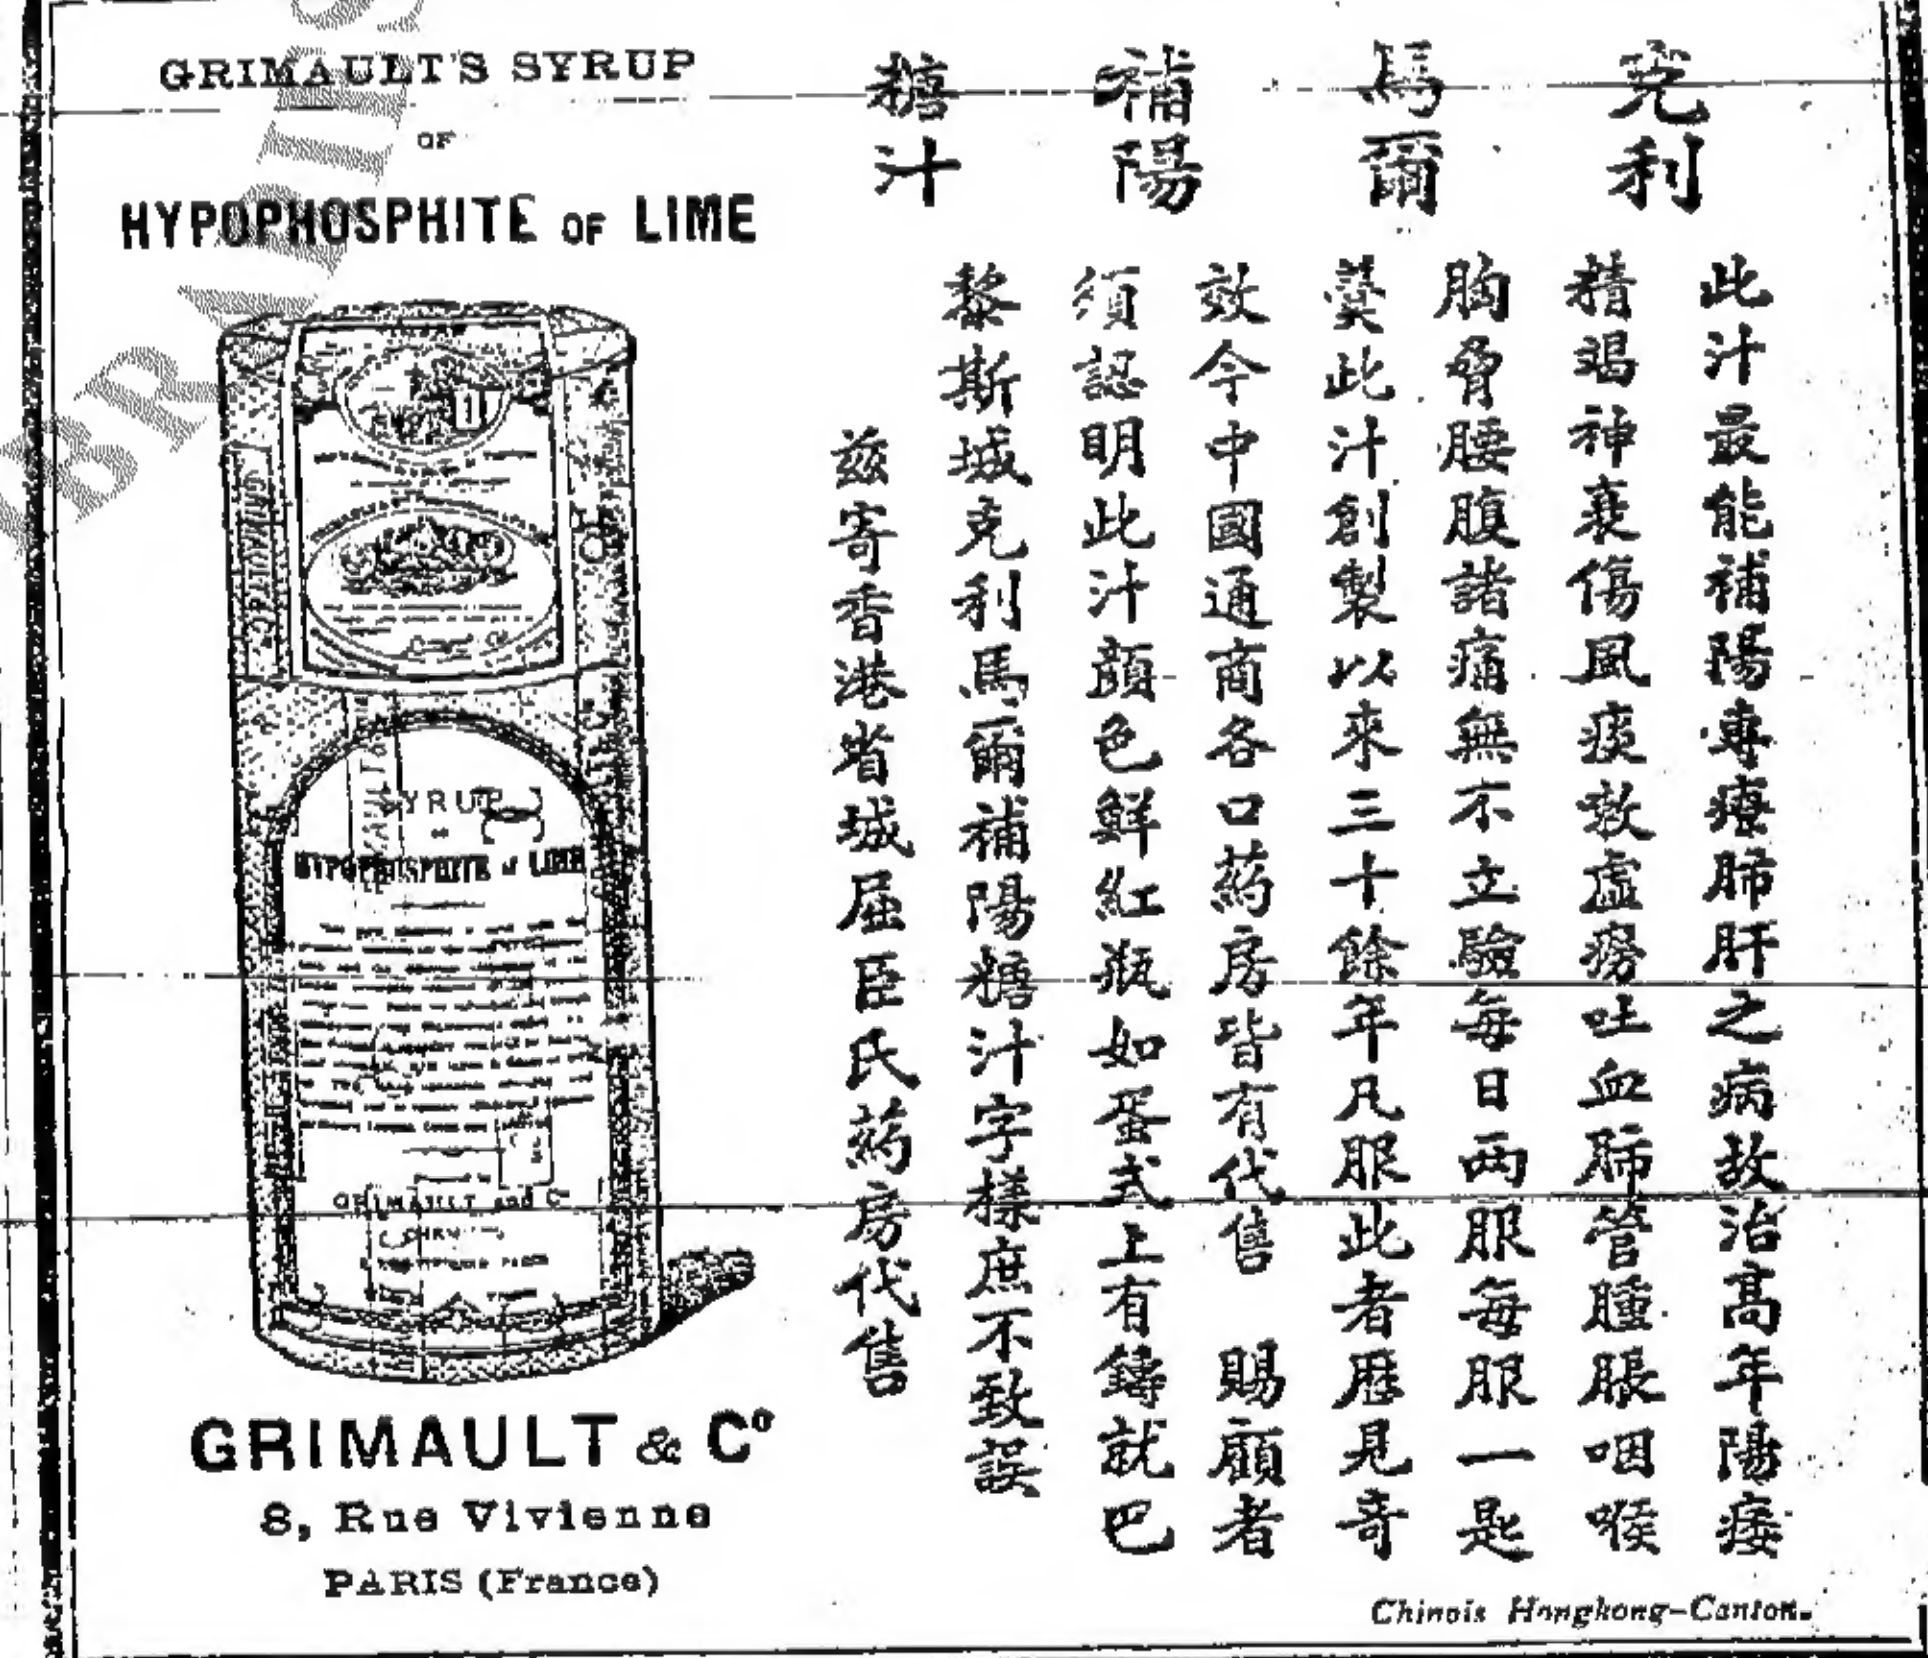 GRIMAULT'S SYRUP
OF
HYPOPHOSPHITE OF LIME
GRIMAULT & Cº
SYRUP
OF
HYPOPHOSPHITE of LIME
GRIMAULT and Cº
GRIMAULT & Cº
8, Rue Vivienne
PARIS (France)
克利
馬爾
補陽
糖汁
此汁最能補陽專療肺肝之病故治高年陽痿
精竭神衰傷風痰咳虛癆吐血肺管腫脹咽喉
胸脅腰腹諸痛無不立驗每日兩服每服一匙
羹此汁創製以來三十餘年凡服此者歷見奇
效今中國通商各口葯房皆有代售 賜顧者
須認明此汁顏色鮮紅瓶如蛋式上有鑄就巴
黎斯城克利馬爾補陽糖汁字樣庶不致誤
茲寄香港省城屈臣氏葯房代售
Chinois Hongkong-Canton.